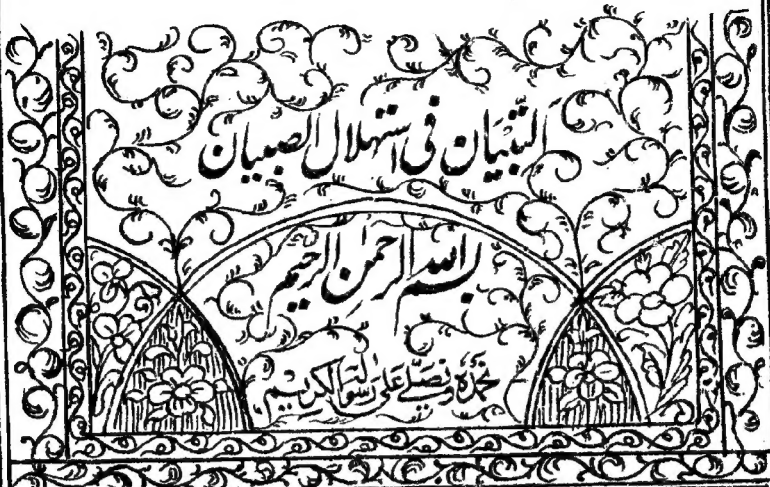 التِّبْيَان فى استهلال الصبيان
بسم الله الرحمن الرحيم
نحمده ونصلے علىٰ رسوله الكريم